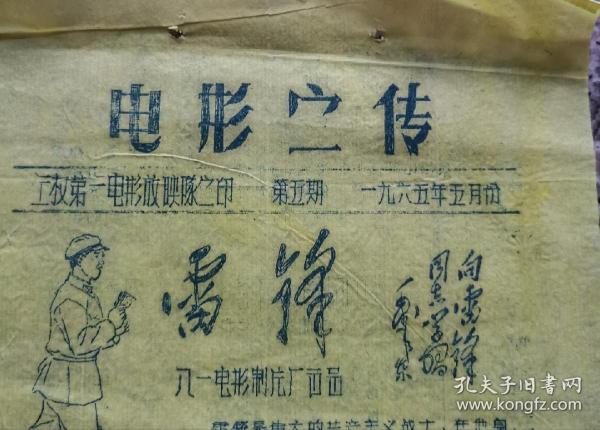 电影宣传
工权第一电影放映队之印 第五期 一九六五年五月份
雷锋
向雷锋
同志学习
毛泽东
八一电影制片厂出品
雷锋是伟大的共产主义战士，在世界
孔夫子旧书网
www.kongfz.com